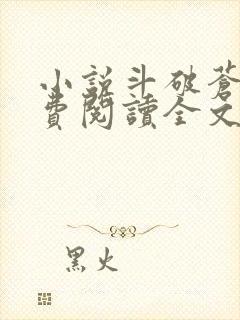 小說斗破蒼
費閱讀全文
黑火